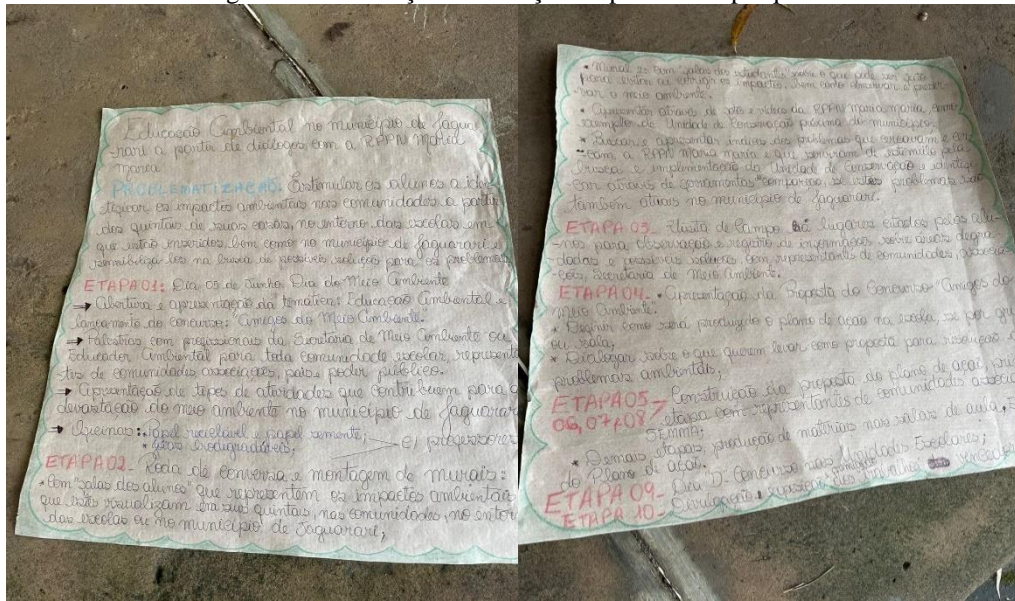 Educação Ambiental no município de Jagua-
rari a partir de diálogos com a RPPN Maria
Maria
PROBLEMATIZAÇÃO: Estimular os alunos a iden-
tificar os impactos ambientais nas comunidades a partir
dos quintais de suas casas, no entorno das escolas em
que estão inseridos, bem como no município de Jaguarari e
sensibilizá-los na busca de possíveis soluções para os problemas
ETAPA 01: Dia 05 de Junho. Dia do Meio Ambiente
→ Abertura e apresentação da temática: Educação Ambiental e
lançamento do concurso: "Amigos do Meio Ambiente".
→ Palestra com profissionais da Secretaria de Meio Ambiente ou
Educador Ambiental para toda comunidade escolar, represent
tes de comunidades associações, pais e poder público.
→ Apresentação de tipos de atividades que contribuem para a
devastação do meio ambiente no município de Jaguarari
→ Oficinas: Papel reciclável e papel semente;
* biodegradáveis; professores
ETAPA 02- Roda de conversa e montagem de murais:
* Com "falas dos alunos" que representem os impactos ambientais
que eles visualizam em seus quintais, nas comunidades, no entor
das escolas ou no município de Jaguarari;
* Mural 2: Com falas dos estudantes sobre o que pode ser feito
para evitar ou corrigir os impactos, bem como e preser-
var o meio ambiente.
* Apresentar através de fotos e vídeos da RPPN Maria Maria, como
exemplo de Unidade de Conservação próxima do município.
* Buscar e apresentar indícios dos problemas que e cer-
cam a RPPN Maria Maria e que serviram de estímulo pela
busca e implementação da Unidade de Conservação e identifi-
car através de comparação, se estes problemas são
também atuais no município de Jaguarari.
ETAPA 03- Visita de Campo à lugares citados pelos alu-
nos para observação e registro de informações sobre áreas degra-
dadas e possíveis soluções com representantes de comunidades, associa-
ções, Secretaria de Meio Ambiente.
ETAPA 04- • Apresentação da Proposta do Concurso "Amigos do
Meio Ambiente".
* Definir como será produzido o plano de ação na escola, se por gru
ou sala;
* Dialogar sobre o que querem levar como proposta para resolução
problemas ambientais;
ETAPA 05 Construção da proposta do plano de ação,
06, 07 e 08 etapa com representantes de comunidades associa
SEMMA;
* Demais etapas, produção de matérias nas salas de aula,
do Plano de ação.
ETAPA 09- Dia D: Concurso nas Unidades Escolares;
ETAPA 10- Divulgação e exposição dos trabalhos vencedor